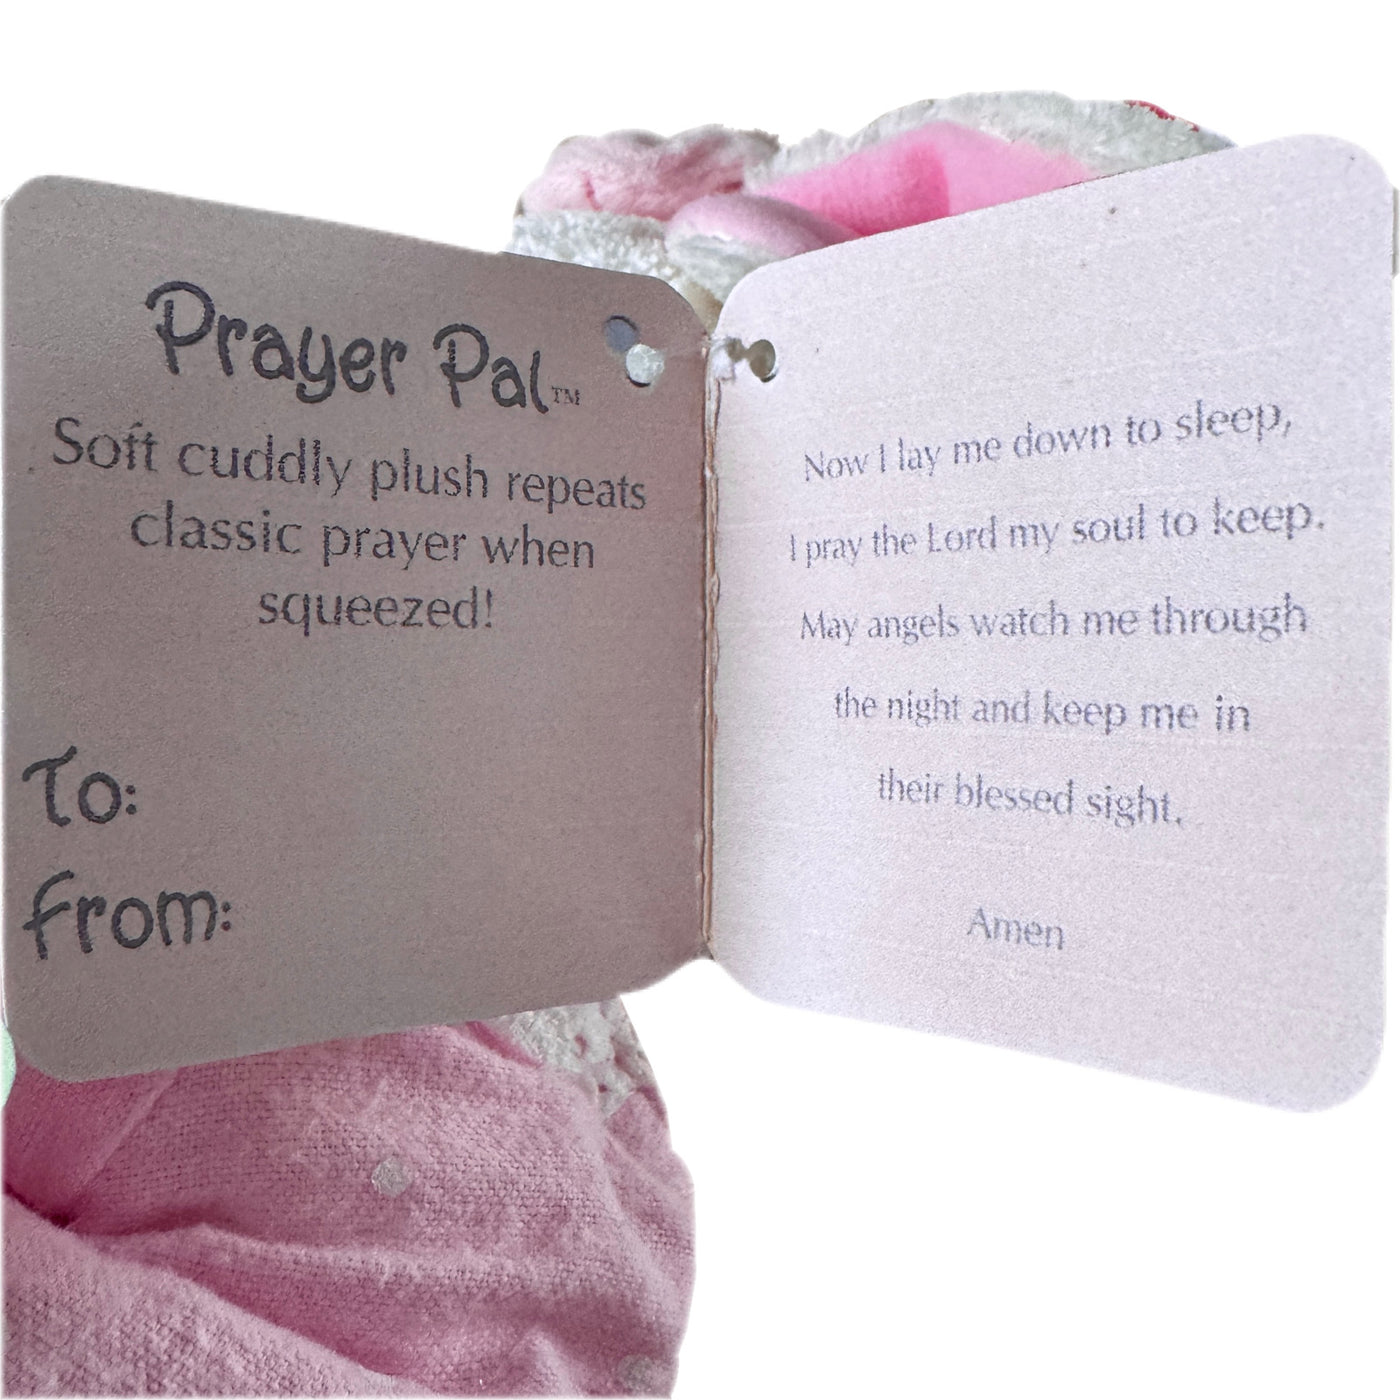 Prayer Pal™
Soft cuddly plush repeats
classic prayer when
squeezed!
To:
From:
Now I lay me down to sleep,
I pray the Lord my soul to keep.
May angels watch me through
the night and keep me in
their blessed sight.
Amen